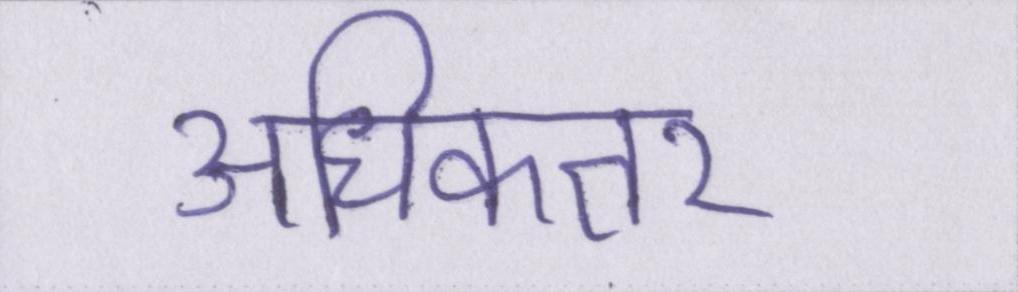 अधिकतर